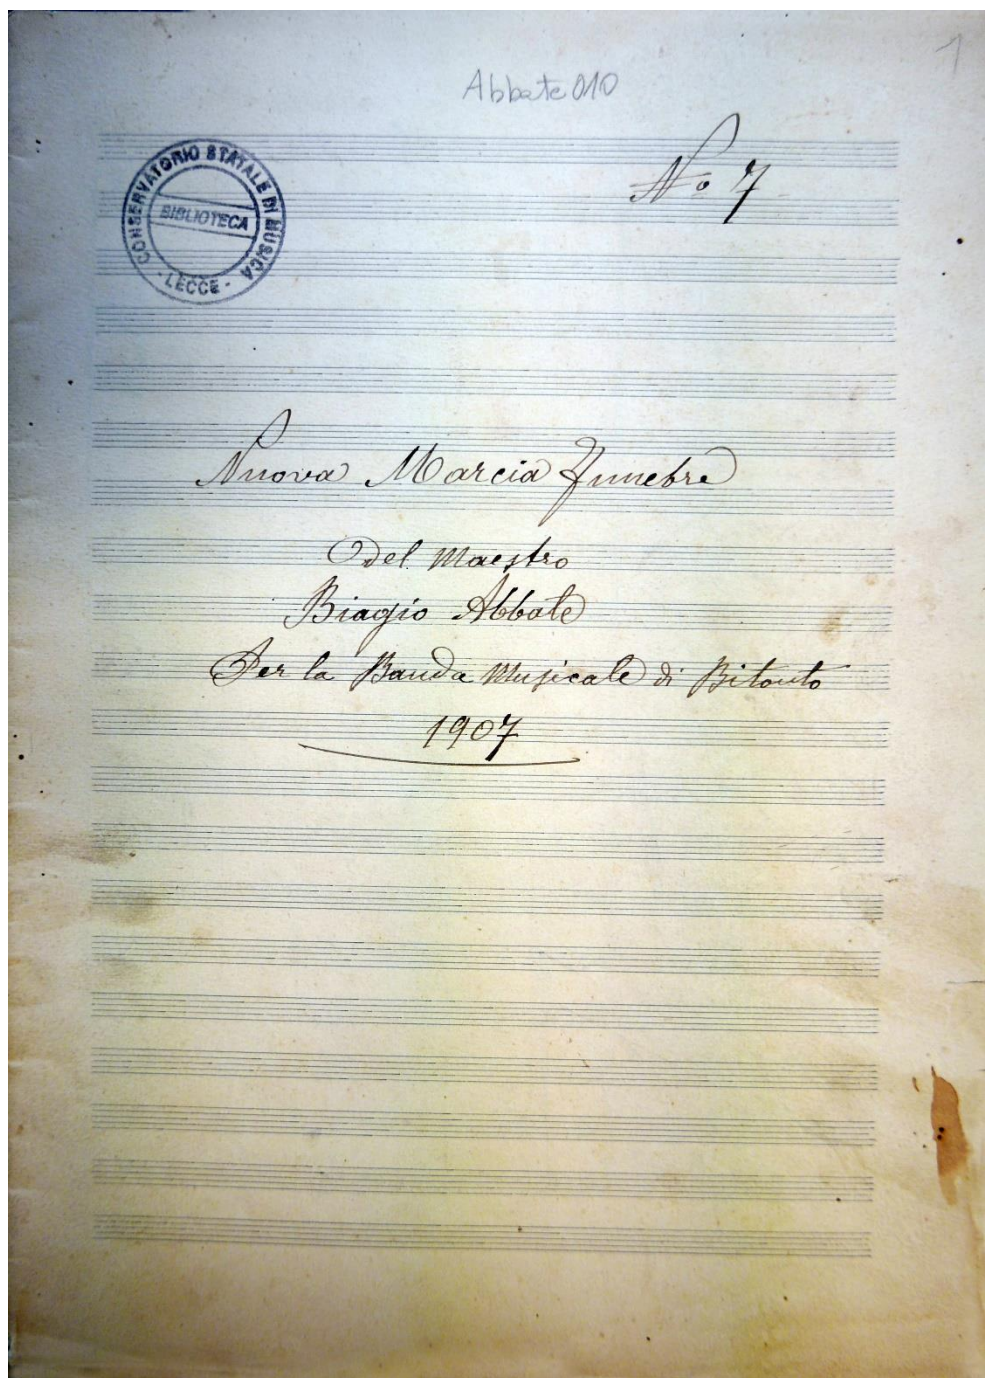 1
Abbate 010
Nº 7
CONSERVATORIO STATALE DI MUSICA
BIBLIOTECA
- LECCE -
Nuova Marcia Funebre
Del Maestro
Biagio Abbate
Per la Banda Musicale di Bitonto
1907